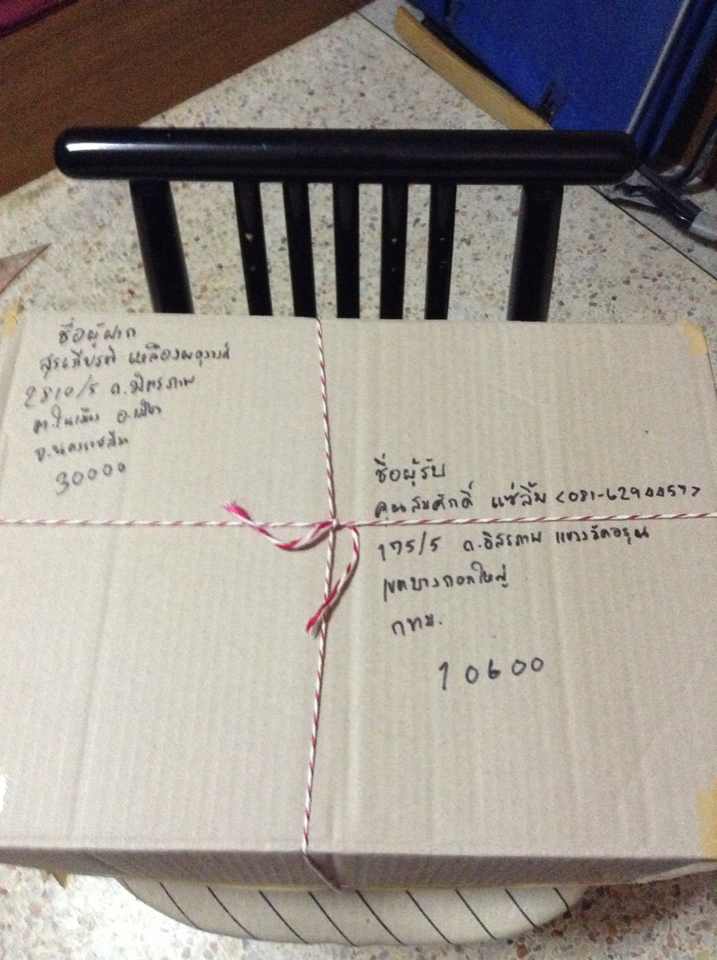 ชื่อผู้ฝาก
สุรเกียรติ เหลือง
2810/5 ถ.มิตรภาพ
ต.ในเมือง อ.เมือง
จ.นครราชสีมา
30000
ชื่อผู้รับ
คุณสมศักดิ์ แซ่ลิ้ม
175/5 ถ.อิสรภาพ แขวงวัดอรุณ
เขตบางกอกใหญ่
กทม.
10600